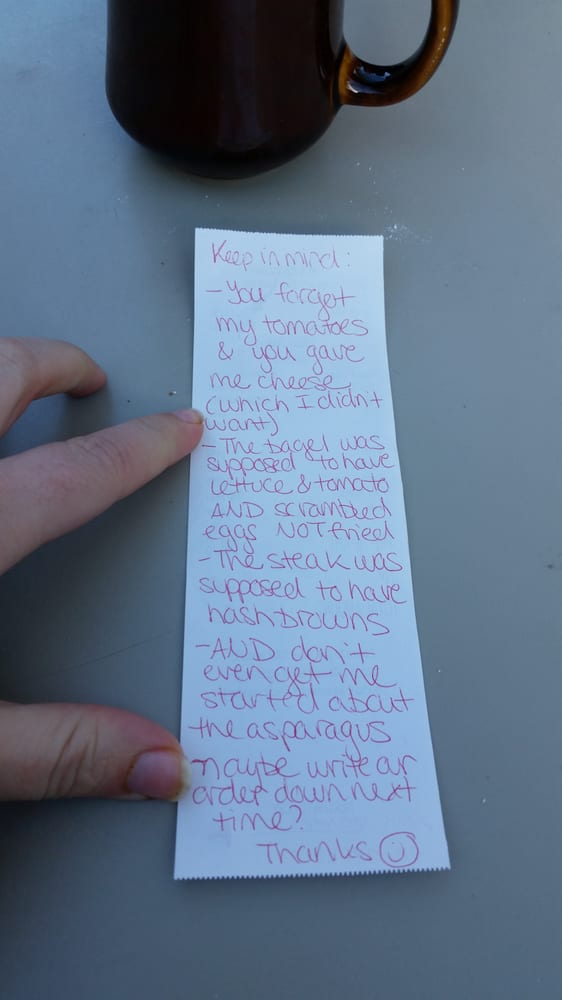 Keep in mind:
- You forgot
my tomatoes
& you gave
me cheese
(which I didn't
want)
- The bagel was
supposed to have
lettuce & tomato
AND scrambled
eggs NOT fried
- The steak was
supposed to have
hashbrowns
- AND don't
even get me
started about
the asparagus
maybe write our
order down next
time?
Thanks